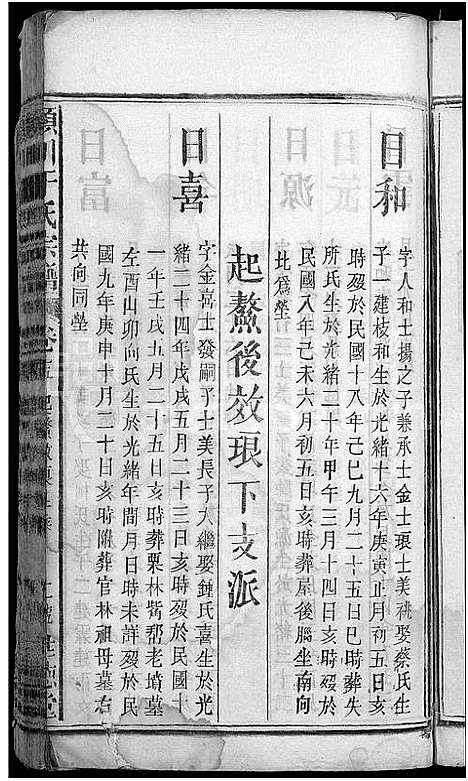 日和
字人和士揚之子兼承士金士琅士美祧娶蔡氏生
子一建枝和生於光緒十六年庚寅正月初五日亥
時歿於民國十八年己巳九月二十五日巳時葬失
所氏生於光緒二十年甲午三月十四日亥時歿於
民國八年己未六月初五日亥時葬屋後腦坐南向
北爲塋
起鰲後效琅下支派
日喜
字金喜士發嗣子士美長子大繼娶鍾氏喜生於光
緒二十四年戊戌五月二十三日亥時歿於民國十
一年壬戌五月二十五日亥時葬栗林嘴帮老墳墓
左酉山卯向氏生於光緒年間月日時未詳歿於民
國九年庚申十月二十日亥時附葬官林祖母墓右
共向同塋
氏宗譜
卷五
起鰲效琅